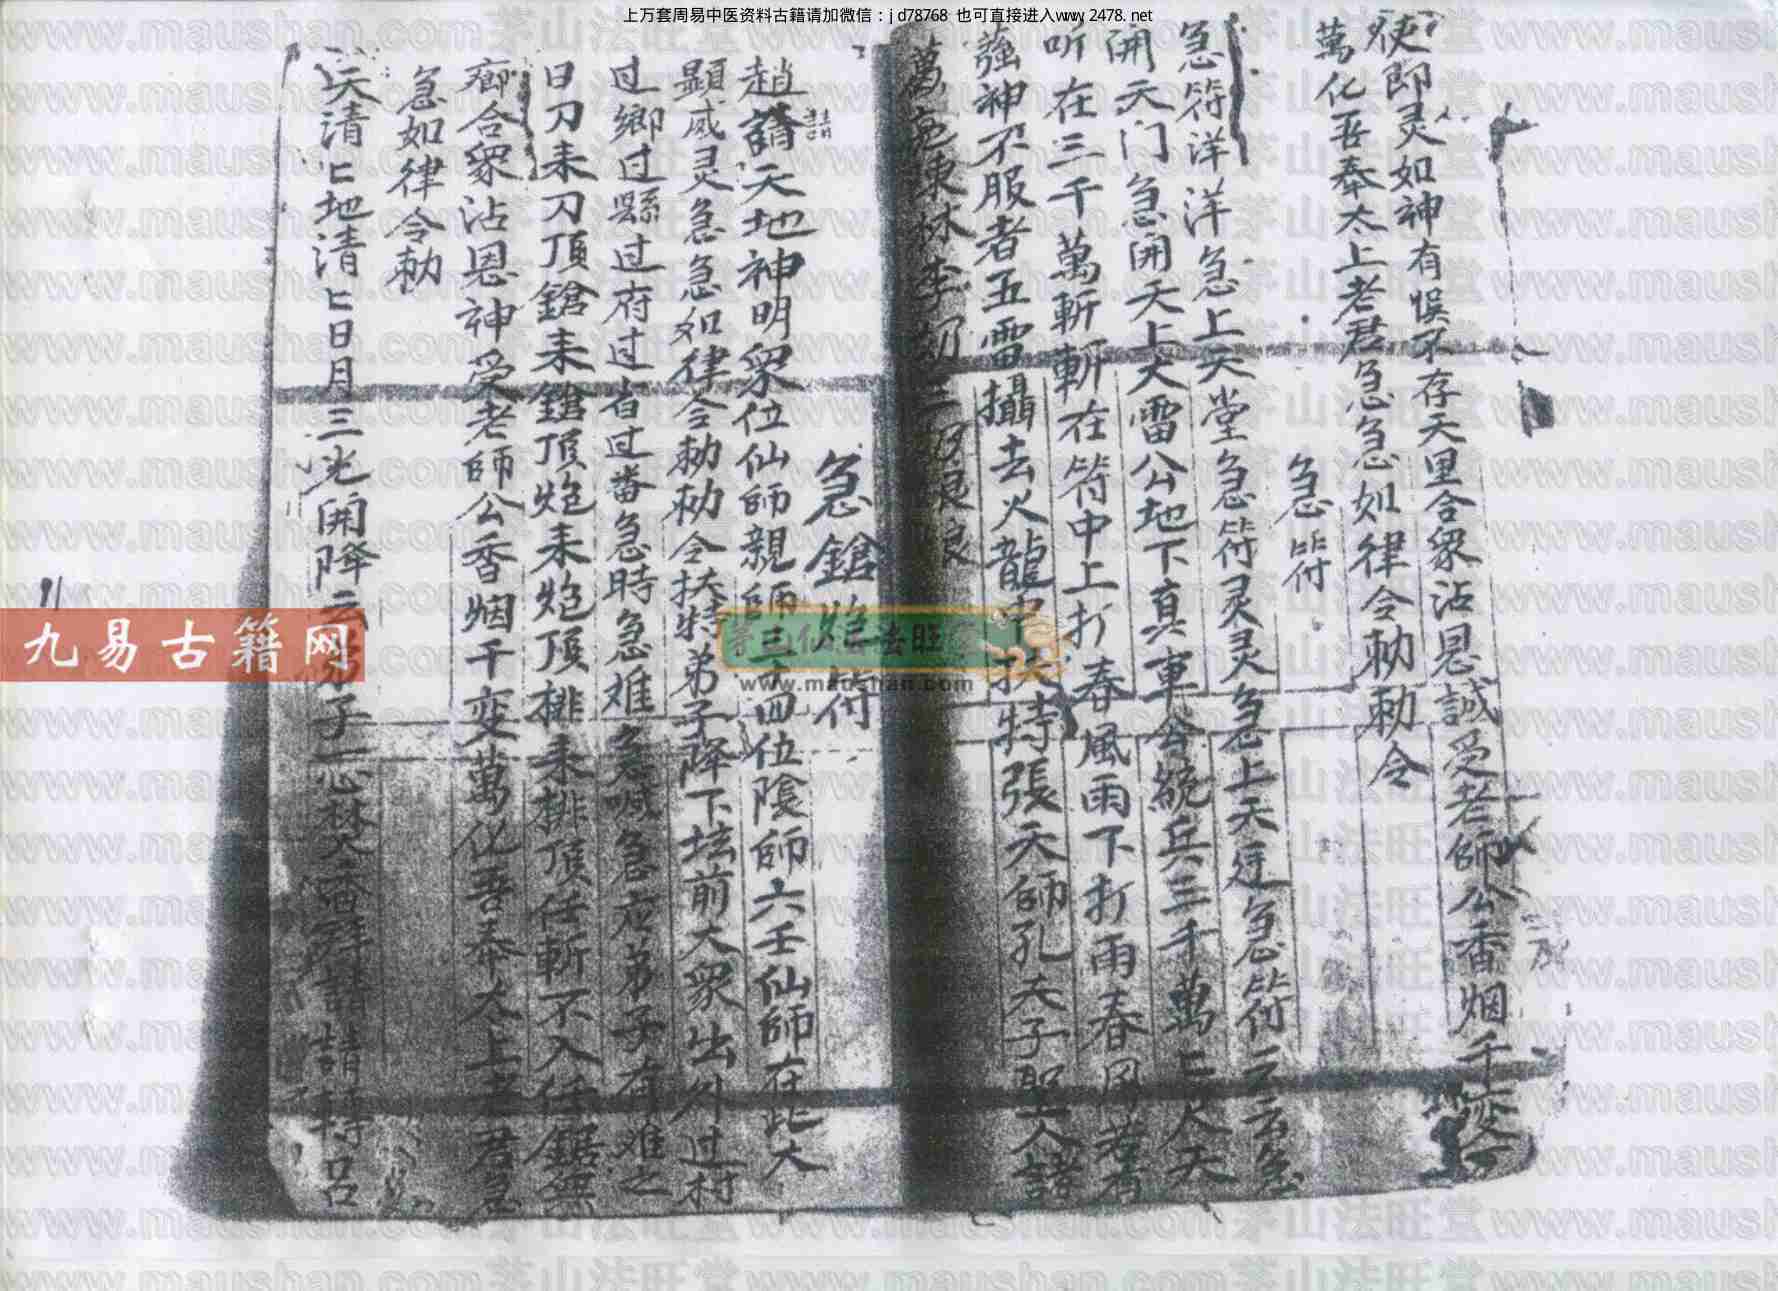 上万套周易中医资料古籍请加微信：jd78768 也可直接进入www.2478.net
使即灵如神有悮不存天里合衆沾恩誠受老師公香烟千变
萬化吾奉太上老君急急如律令勅勅令
急符
急符洋洋急上天堂急急符灵灵急上天廷急急符云云急
開天门急開天上大雷公地下真車公統兵三千萬匕人天
听在三千萬斬斬在符中上打春風雨下打雨春風若有
强神不服者五雷攝去火龍中扶特張天師孔夫子聖人諸
萬陳林李奶三
急鎗炮符
趙請天地神明衆位仙師親師三了四位陰師六壬仙師在此大
請
顯威灵急急如律令勅勅令扶特弟子降下坛前大衆出外过村
过鄉过縣过府过省过蕃急時急难急喊急应弟子有难之
日刀耒刀頂鎗耒鎗頂炮耒炮頂排耒排頂任斬不入任鋸無
廊合衆沾恩神受老師公香烟千变萬化吾奉太上老君急
急如律令勅
天清匕地清匕日月三光開降云弟子一心焚香拜請請特呂
九易古籍网
www.maushan.com
茅山法旺堂